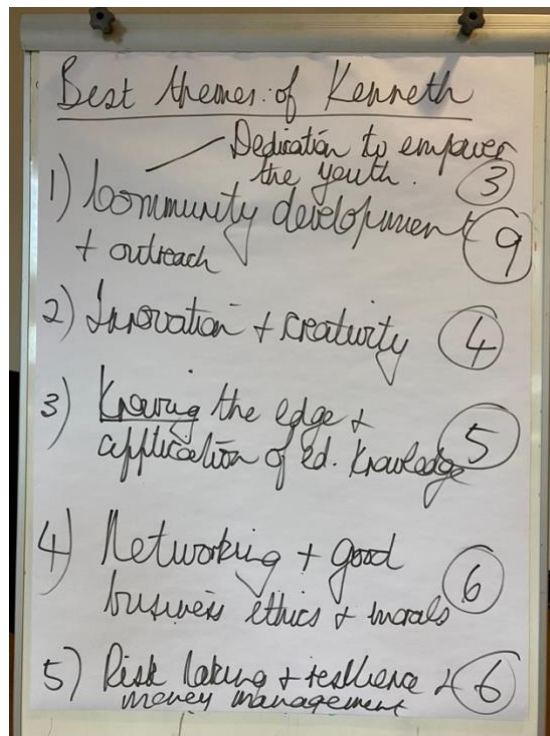 Best themes of Kenneth
Dedication to empower
the youth. 3
1) Community development 9
+ outreach
2) Innovation + creativity 4
3) Knowing the edge + 5
application of ed. knowledge
4) Networking + good
business ethics + morals 6
5) Risk taking + resilience + 6
money management